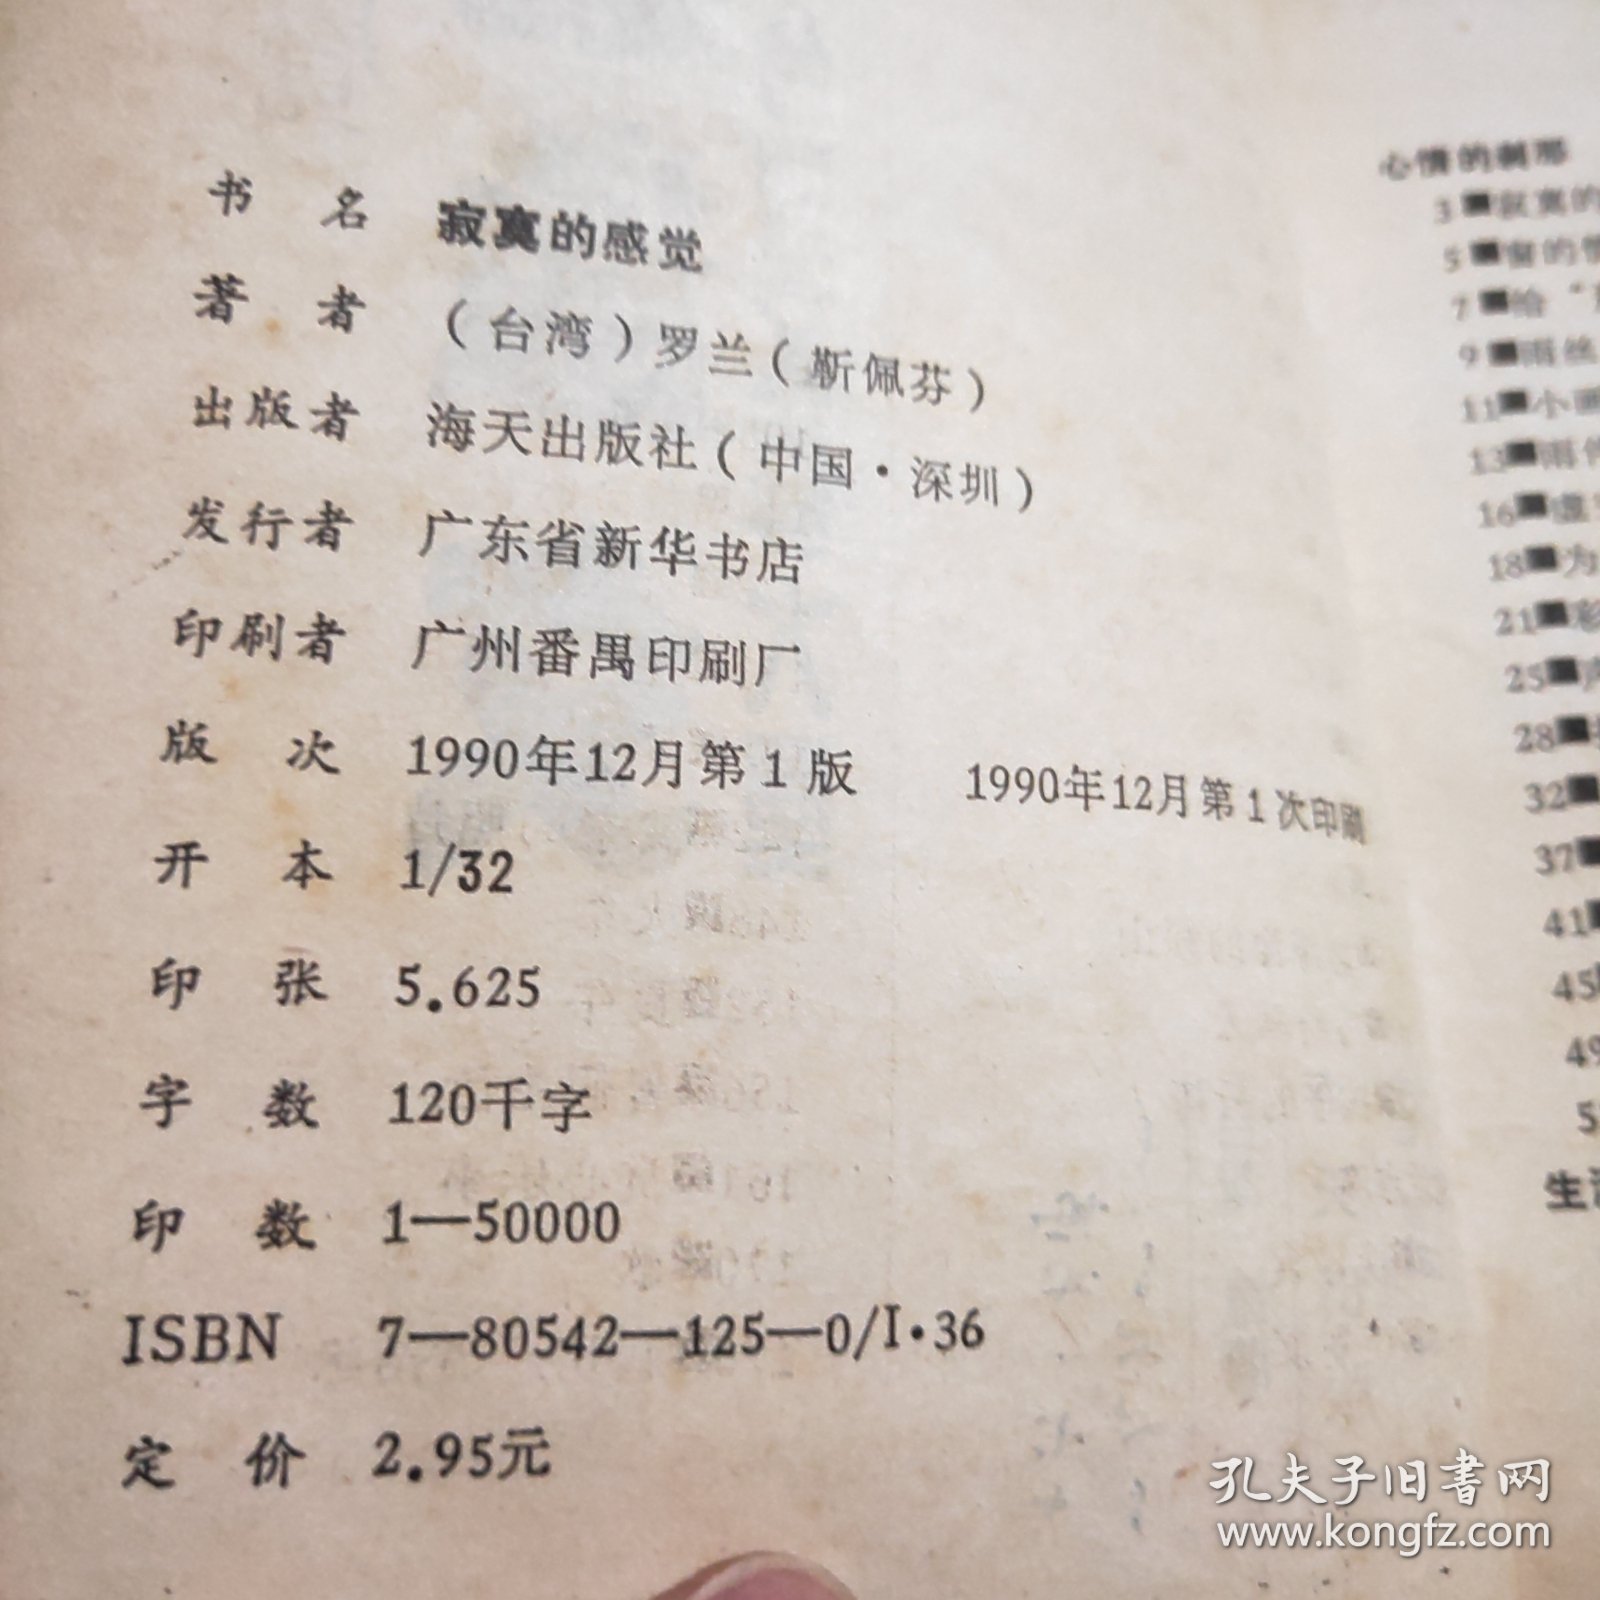 书 名 寂寞的感觉
著 者 (台湾)罗兰(靳佩芬)
出版者 海天出版社(中国·深圳)
发行者 广东省新华书店
印刷者 广州番禺印刷厂
版 次 1990年12月第1版 1990年12月第1次印刷
开 本 1/32
印 张 5.625
字 数 120千字
印 数 1—50000
ISBN 7—80542—125—0/I·36
定 价 2.95元
心情的刹那
3■寂寞的
5■窗的情
7■给“
9■雨丝
11■小画
13■雨
16■虚
18■为
21■彩
25■声
28■
32■
37■
41■
45
49
5
生
孔夫子旧书网
www.kongfz.com